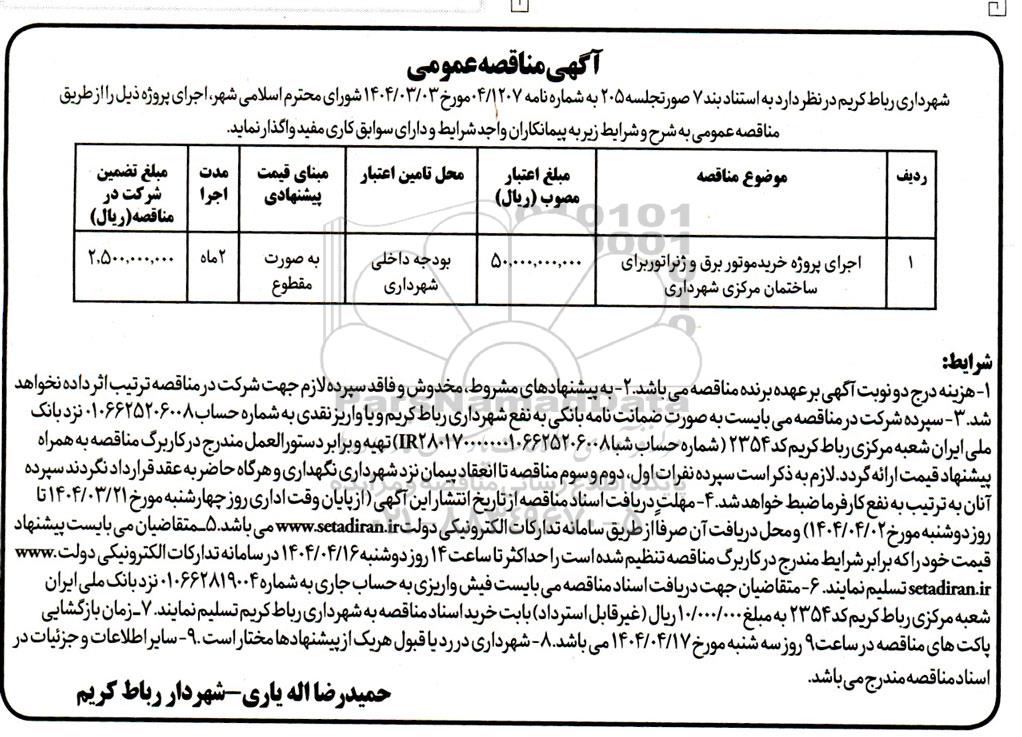 آگهی مناقصه عمومی
شهرداری رباط کریم در نظر دارد به استناد بند ۷ صورتجلسه ۲۰۵ به شماره نامه ۰۴/۱۲۰۷ مورخ ۱۴۰۴/۰۳/۰۳ شورای محترم اسلامی شهر، اجرای پروژه ذیل را از طریق
مناقصه عمومی به شرح و شرایط زیر به پیمانکاران واجد شرایط و دارای سوابق کاری مفید واگذار نماید.
ردیف موضوع مناقصه مبلغ اعتبار مصوب (ریال) محل تامین اعتبار مبنای قیمت پیشنهادی مدت اجرا مبلغ تضمین شرکت در مناقصه (ریال)
۱ اجرای پروژه خرید موتور برق و ژنراتور برای ساختمان مرکزی شهرداری ۵۰,۰۰۰,۰۰۰,۰۰۰ بودجه داخلی شهرداری به صورت مقطوع ۲ماه ۲,۵۰۰,۰۰۰,۰۰۰
شرایط:
۱- هزینه درج دو نوبت آگهی بر عهده برنده مناقصه می باشد. ۲- به پیشنهادهای مشروط، مخدوش و فاقد سپرده لازم جهت شرکت در مناقصه ترتیب اثر داده نخواهد
شد. ۳- سپرده شرکت در مناقصه می بایست به صورت ضمانت نامه بانکی به نفع شهرداری رباط کریم و یا واریز نقدی به شماره حساب ۰۱۰۶۶۲۵۲۰۶۰۰۸ نزد بانک
ملی ایران شعبه مرکزی رباط کریم کد ۲۳۵۴ (شماره حساب شبا IR۲۸۰۱۷۰۰۰۰۰۰۰۱۰۶۶۲۵۲۰۶۰۰۸) تهیه و برابر دستورالعمل مندرج در کاربرگ مناقصه به همراه
پیشنهاد قیمت ارائه گردد. لازم به ذکر است سپرده نفرات اول، دوم و سوم مناقصه تا انعقاد پیمان نزد شهرداری نگهداری و هرگاه حاضر به عقد قرارداد نگردند سپرده
آنان به ترتیب به نفع کارفرما ضبط خواهد شد. ۴- مهلت دریافت اسناد مناقصه از تاریخ انتشار این آگهی (از پایان وقت اداری روز چهارشنبه مورخ ۱۴۰۴/۰۳/۲۱ تا
روز دوشنبه مورخ ۱۴۰۴/۰۴/۰۲) و محل دریافت آن صرفاً از طریق سامانه تدارکات الکترونیکی دولت www.setadiran.ir می باشد. ۵- متقاضیان می بایست پیشنهاد
قیمت خود را که برابر شرایط مندرج در کاربرگ مناقصه تنظیم شده است را حداکثر تا ساعت ۱۴ روز دوشنبه ۱۴۰۴/۰۴/۱۶ در سامانه تدارکات الکترونیکی دولت www.
setadiran.ir تسلیم نمایند. ۶- متقاضیان جهت دریافت اسناد مناقصه می بایست فیش واریزی به حساب جاری به شماره ۰۱۰۶۶۲۸۱۹۰۰۴ نزد بانک ملی ایران
شعبه مرکزی رباط کریم کد ۲۳۵۴ به مبلغ ۱۰/۰۰۰/۰۰۰ ریال (غیر قابل استرداد) بابت خرید اسناد مناقصه به شهرداری رباط کریم تسلیم نمایند. ۷- زمان بازگشایی
پاکت های مناقصه در ساعت ۹ روز سه شنبه مورخ ۱۴۰۴/۰۴/۱۷ می باشد. ۸- شهرداری در رد یا قبول هر یک از پیشنهادها مختار است. ۹- سایر اطلاعات و جزئیات در
اسناد مناقصه مندرج می باشد.
حمیدرضا اله یاری - شهردار رباط کریم